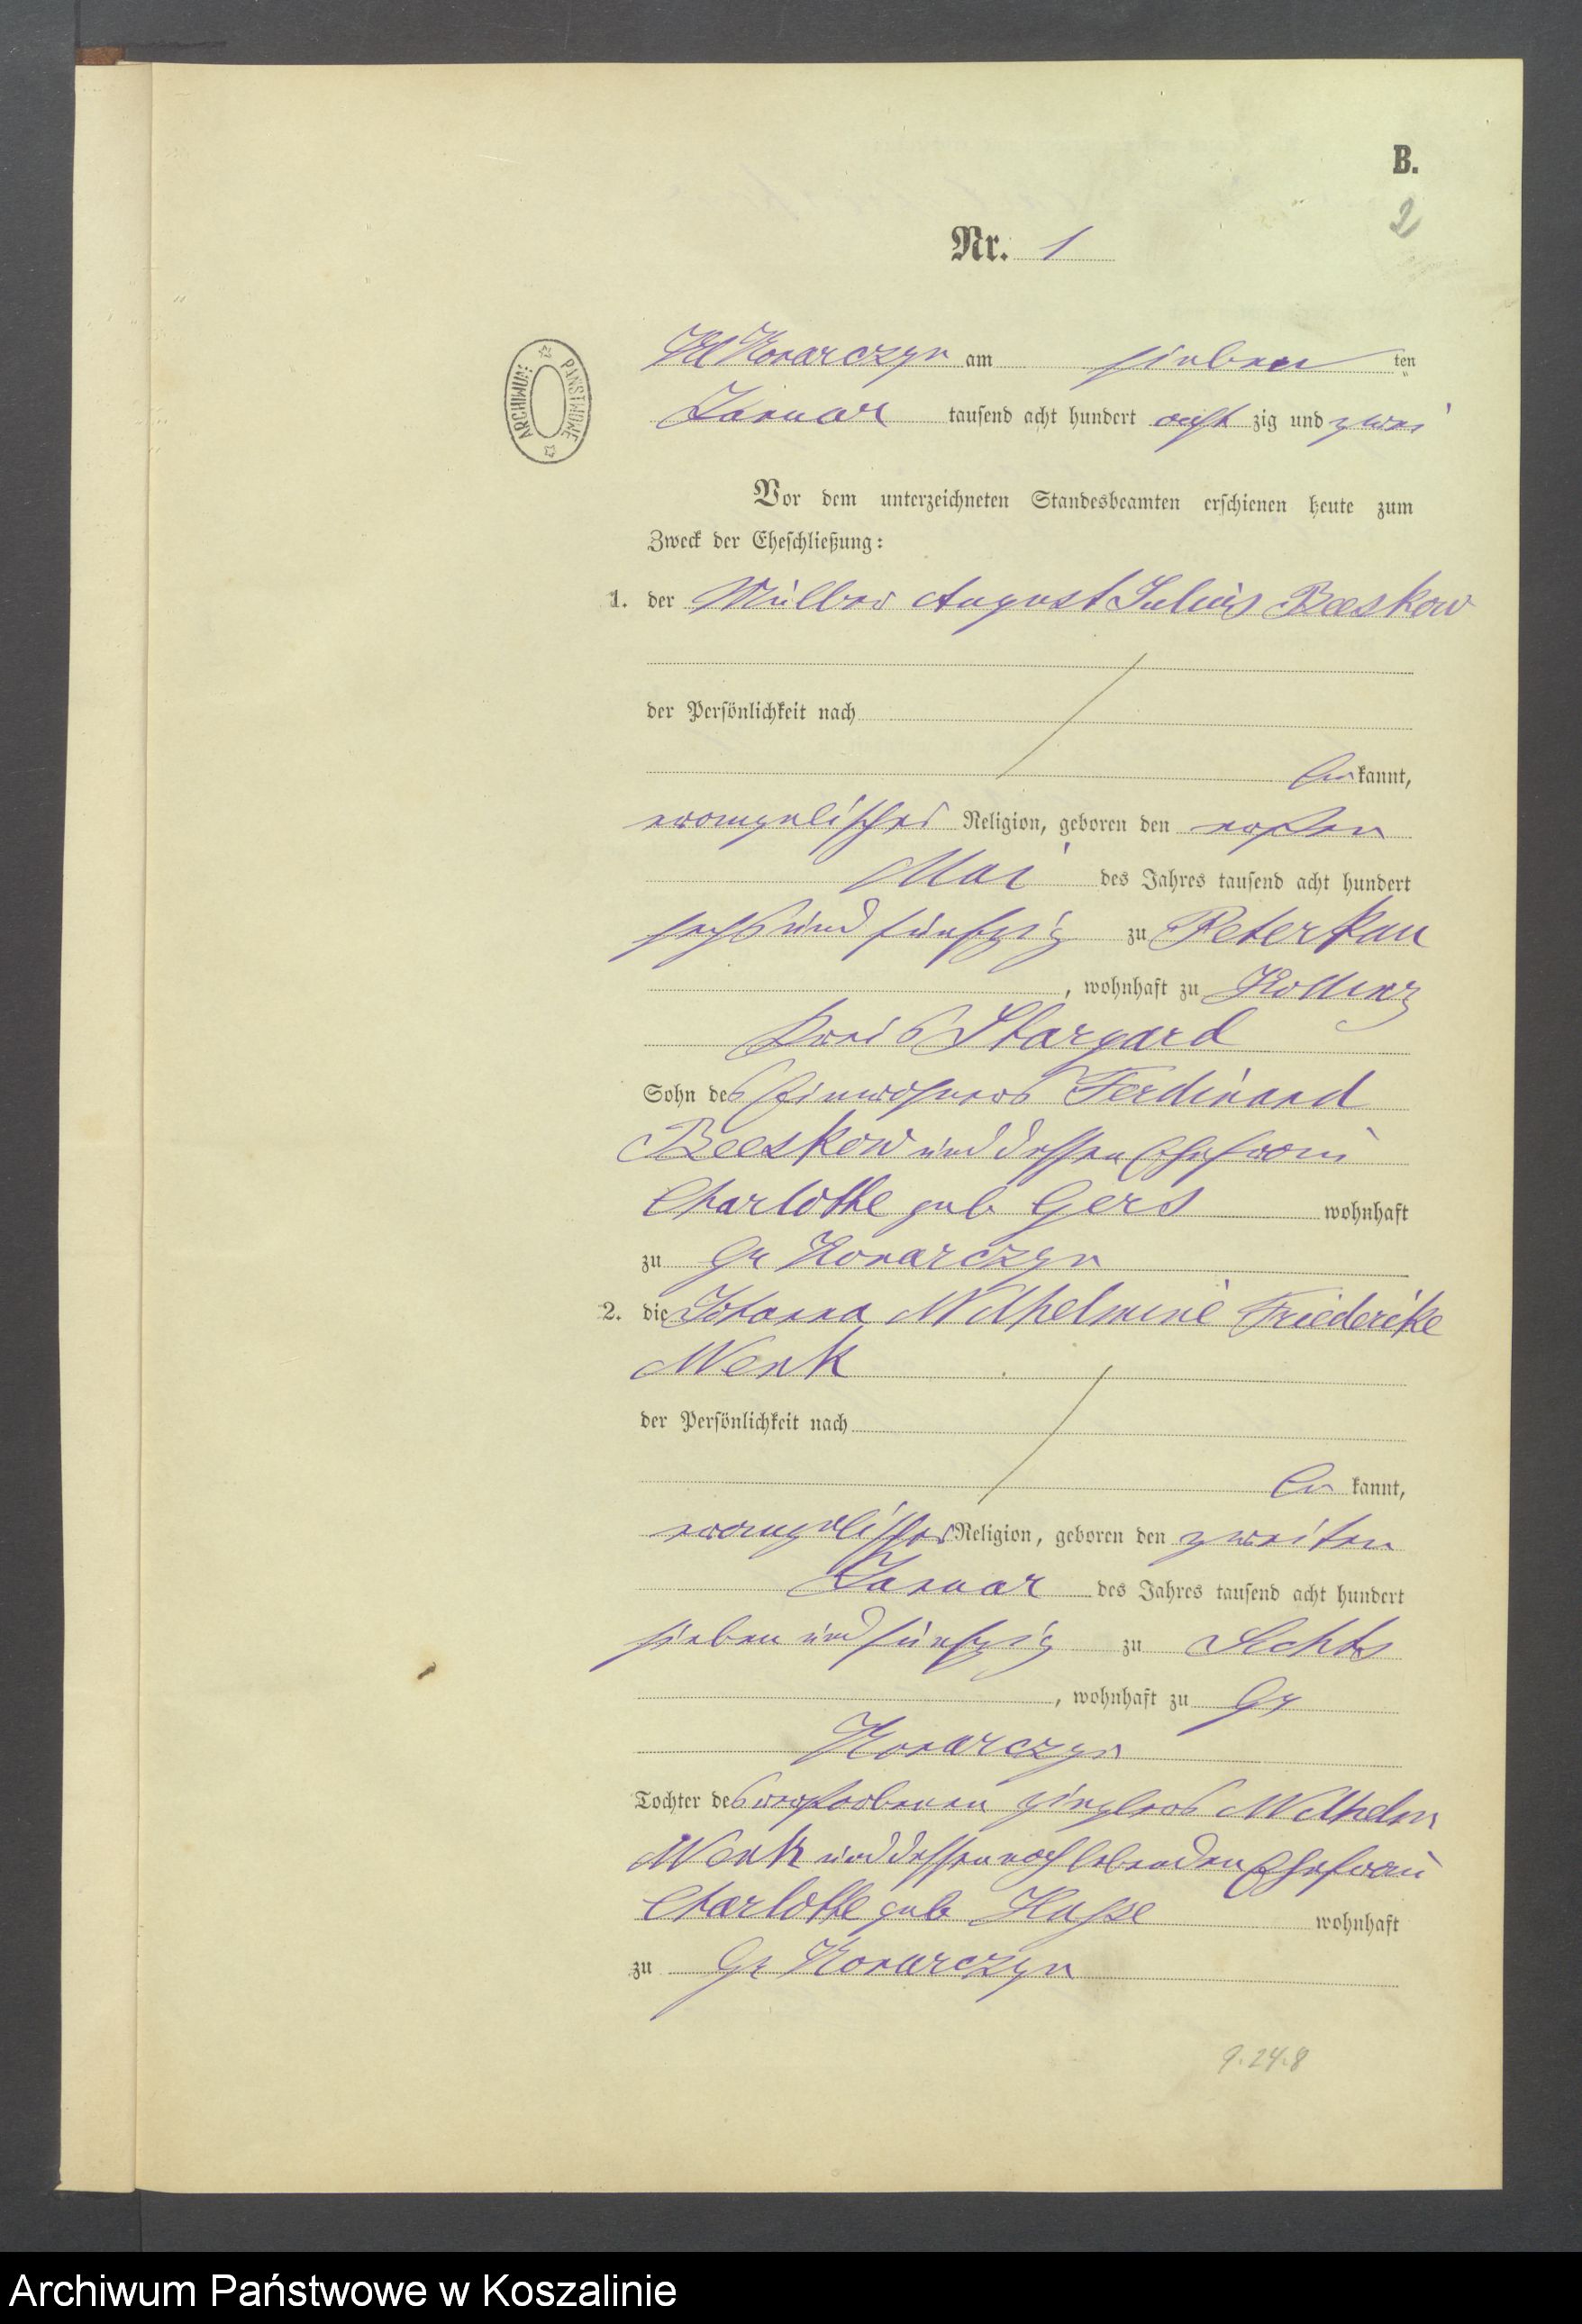 B.
2
Nr. 1
ARCHIWUM PAŃSTWOWE
Kl Konarczyn am sieben ten
Januar tausend acht hundert acht zig und zwei
Vor dem unterzeichneten Standesbeamten erschienen heute zum
Zweck der Eheschließung:
1. der Müller August Julius Beeskow
der Persönlichkeit nach
be kannt,
evangelischer Religion, geboren den ersten
Mai des Jahres tausend acht hundert
sechs und fünfzig zu Peterkau
, wohnhaft zu
Kreis Stargard
Sohn des Einwohners Ferdinand
Beeskow und dessen Ehefrau
Charlotte geb Gers wohnhaft
zu Gr Konarczyn
2. die Johanna Wilhelmine Friederike
Wenk
der Persönlichkeit nach
be kannt,
evangelischer Religion, geboren den zweiten
Januar des Jahres tausend acht hundert
sieben und fünfzig zu Sichts
, wohnhaft zu Gr
Konarczyn
Tochter des verstorbenen Zieglers Wilhelm
Wenk und dessen noch lebenden Ehefrau
Charlotte geb Hasse wohnhaft
zu Gr Konarczyn
9.24.8
Archiwum Państwowe w Koszalinie